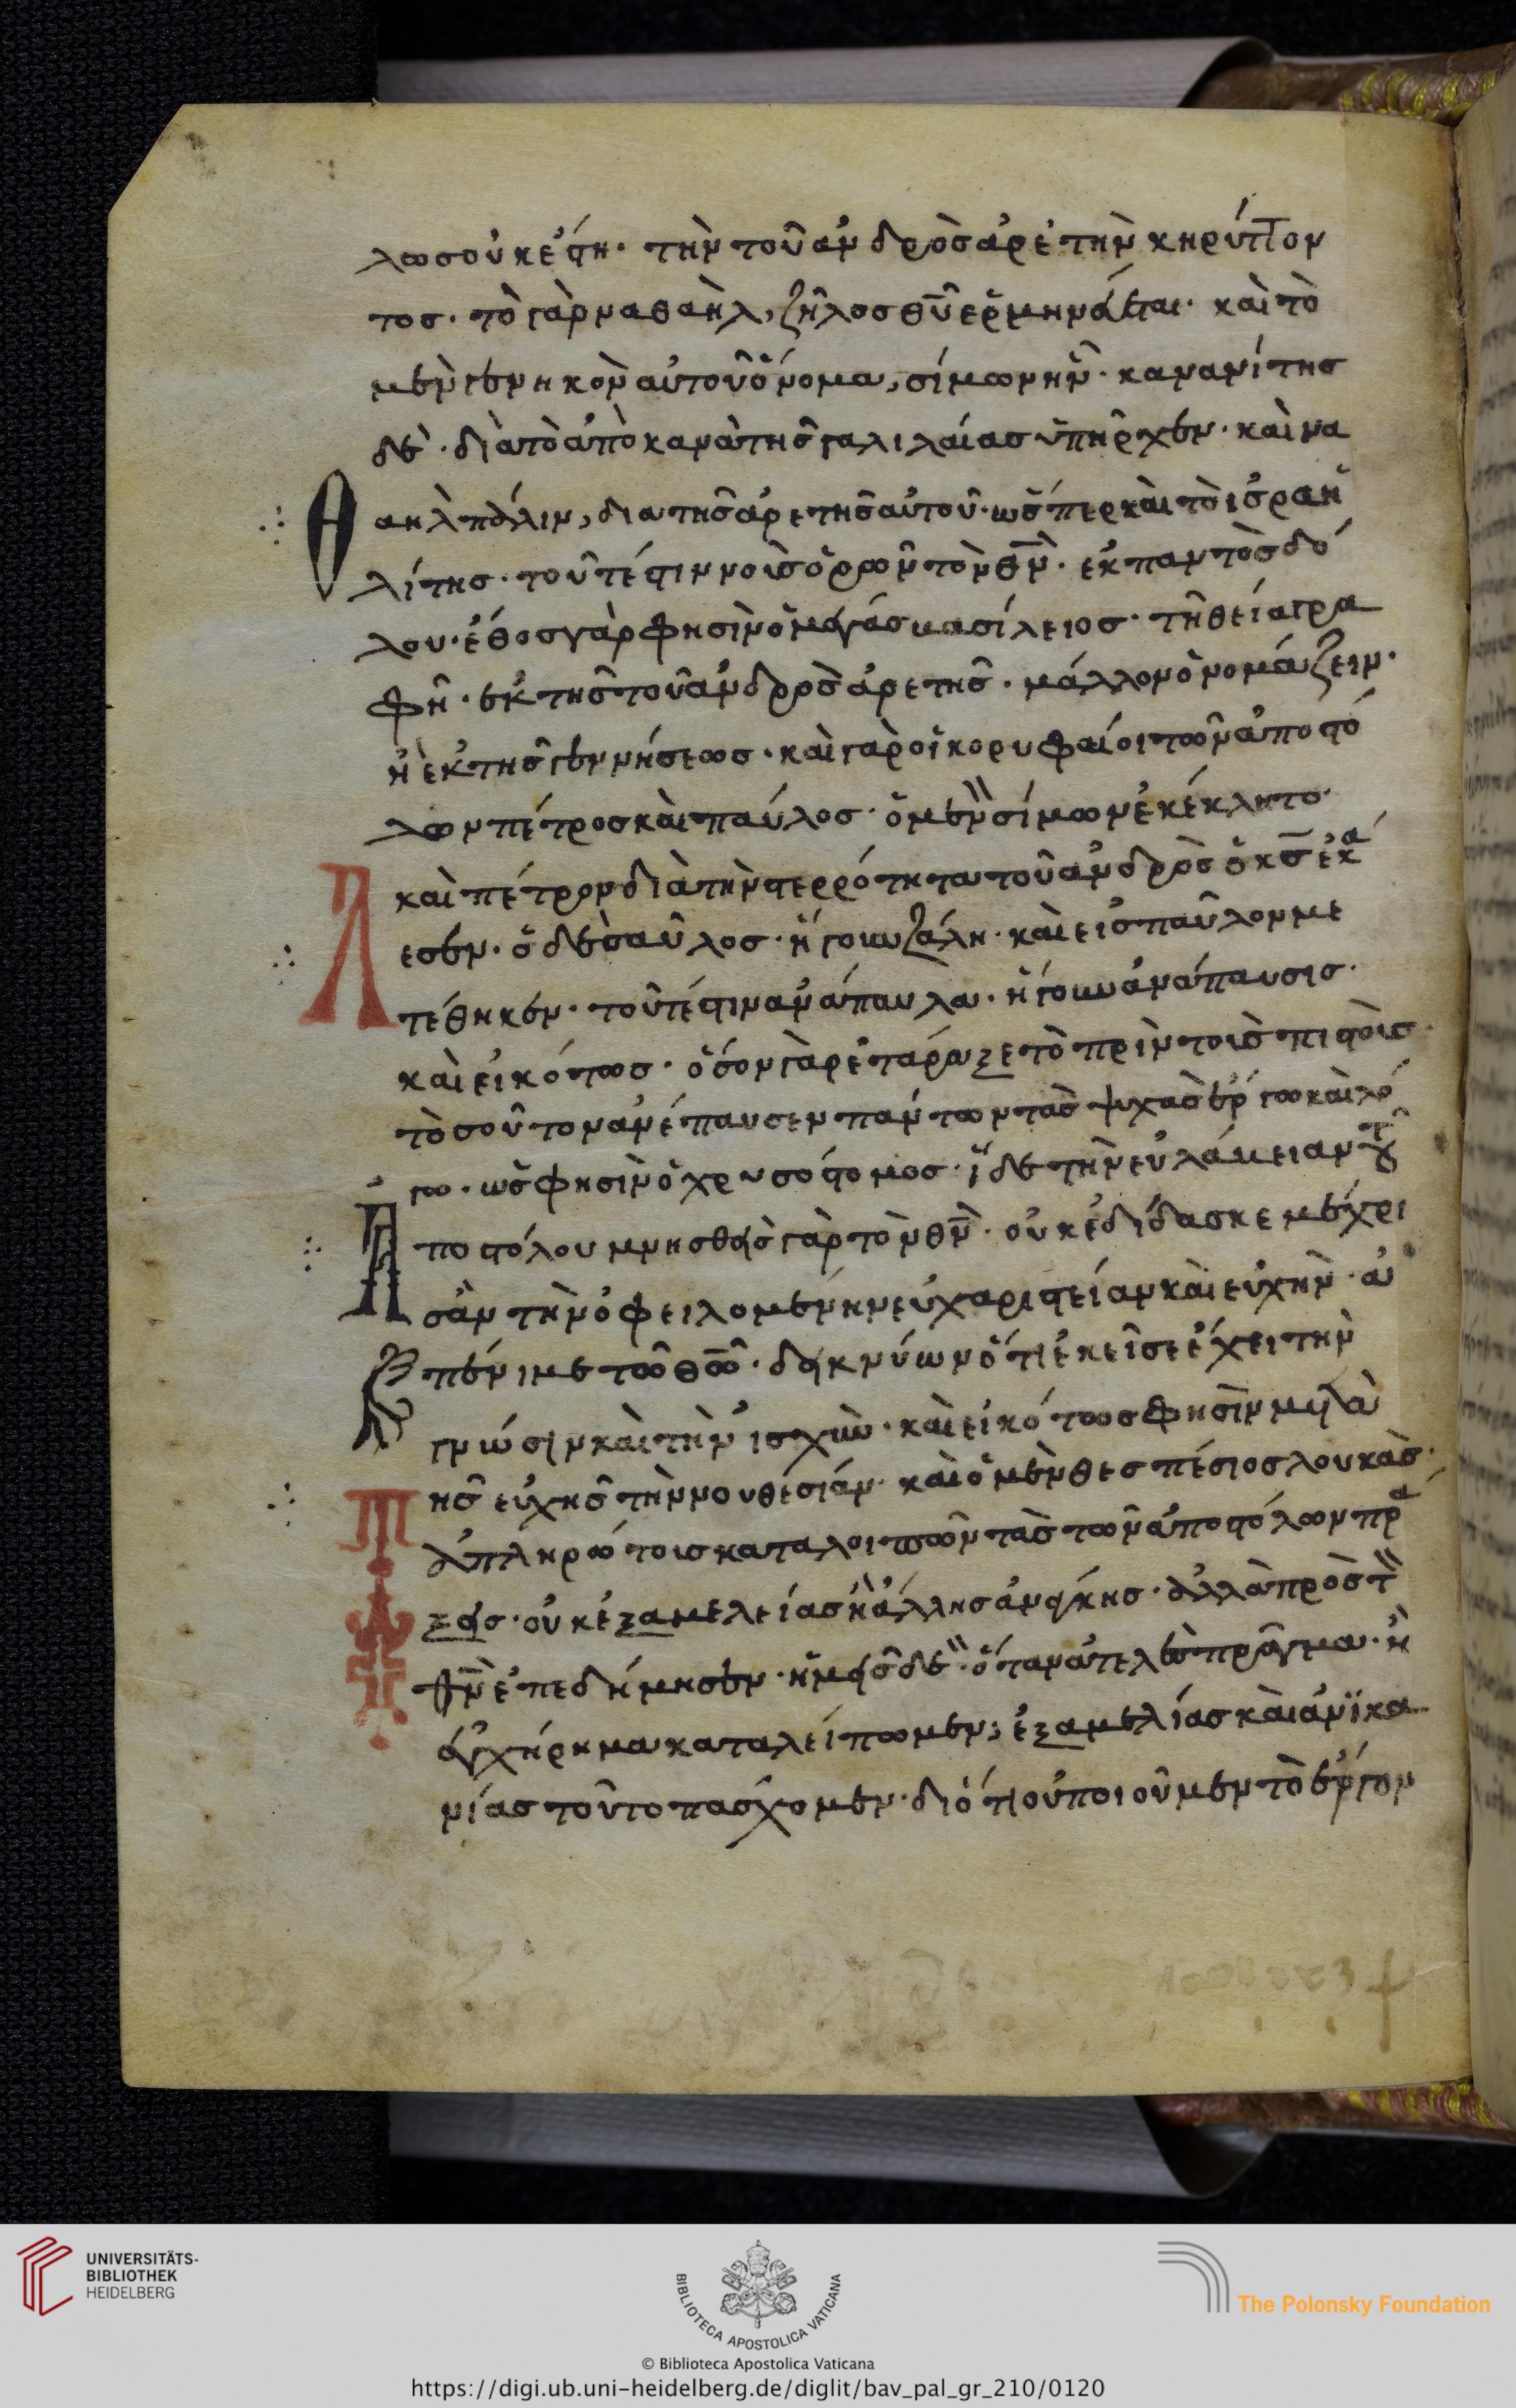 λως οὐκ ἔστι· τὴν τοῦ ἀνδρὸς ἀρετὴν κηρύττον
τος· τὸ γὰρ ναθαὴλ, ζῆλος θῦ ἑρμηνεύεται· καὶ τὸ
μὲν γενικὸν αὐτοῦ ὄνομα, σίμων ἦν· κανανίτης
δὲ· διὰ τὸ ἀπὸ κανὰ τῆς γαλιλαίας ὑπῆρχεν· καὶ να
θαὴλ πάλιν, δια τῆς ἀρετῆς αὐτοῦ· ὥσπερ καὶ τὸ ἰσραη
λίτης· τοῦτέστιν νοῦς ὁρῶν τὸν θν̄· ἐκ παντὸς δό
λου· ἔθος γὰρ φησὶν ὁ μέγας βασίλειος· τῇ θεία γρα
φῇ· ἐκ τῆς τοῦ ἀνδρὸς ἀρετῆς· μάλλον ὀνομάζειν·
ἢ ἐκ τῆς γεννήσεως· καὶ γὰρ οἱ κορυφαίοι τῶν ἀποστό
λων πέτρος καὶ παύλος· ὁ μὲν σίμων ἐκέκλητο·
καὶ πέτρον διὰ τὴν στερρότητα τοῦ ἀνδρὸς ὁ κς̄ ἐκά
λεσεν· ὁ δὲ σαῦλος· ἤγουν ζάλη· καὶ εἰς παῦλον με
τέθηκεν· τοῦτέστιν ἀνάπαυλα· ἤγουν ἀνάπαυσις·
καὶ εἰκότως· ὅσον γὰρ ἐτάραξε τὸ πρὶν τοὺς πιστοὺς·
τὸσοῦτον ἀνέπαυσεν πάντων τὰς ψυχὰς ἔργω καὶ λό
γω· ὡς φησὶν ὁ χρυσόστομος· ἴδε τὴν εὐλάβειαν τοῦ
ἀποστόλου μνησθεὶς γὰρ τὸν θν̄· οὐκ ἐδίδασκε μέχρι
σὰν τὴν ὀφειλομένην εὐχαριστείαν καὶ εὐχὴν· ἀ
νέπενιμε τῶ θω̄· δεικνύων ὅτι ἐκεῖσε ἔχει τὴν
γνώσιν καὶ τὴν ἰσχὺν· καὶ εἰκότως φησὶν μετὰ
τῆς εὐχῆς τὴν νουθεσίαν· καὶ ὁ μὲν θεσπέσιος λουκὰς·
ἀπληρώτους καταλοιπῶν τὰς τῶν ἀποστόλων πρά
ξεις· οὐκ ἐξαμελείας ἢ ἄλλης ἀνάγκης· ἀλλὰ πρὸς τὸν
θν̄ ἐπεδήμησεν· ἡμεῖς δὲ· ὅταν ἀτελὲς πράγμα· ἢ
ἐγχήρημα καταλείπωμεν, ἐξαμελίας καὶ ἀνϊκα
νίας τοῦτο πασχομεν· διότι οὐ ποιοῦμεν τὸ ἔργον
UNIVERSITÄTS-
BIBLIOTHEK
HEIDELBERG
BIBLIOTECA APOSTOLICA VATICANA
The Polonsky Foundation
© Biblioteca Apostolica Vaticana
https://digi.ub.uni-heidelberg.de/diglit/bav_pal_gr_210/0120